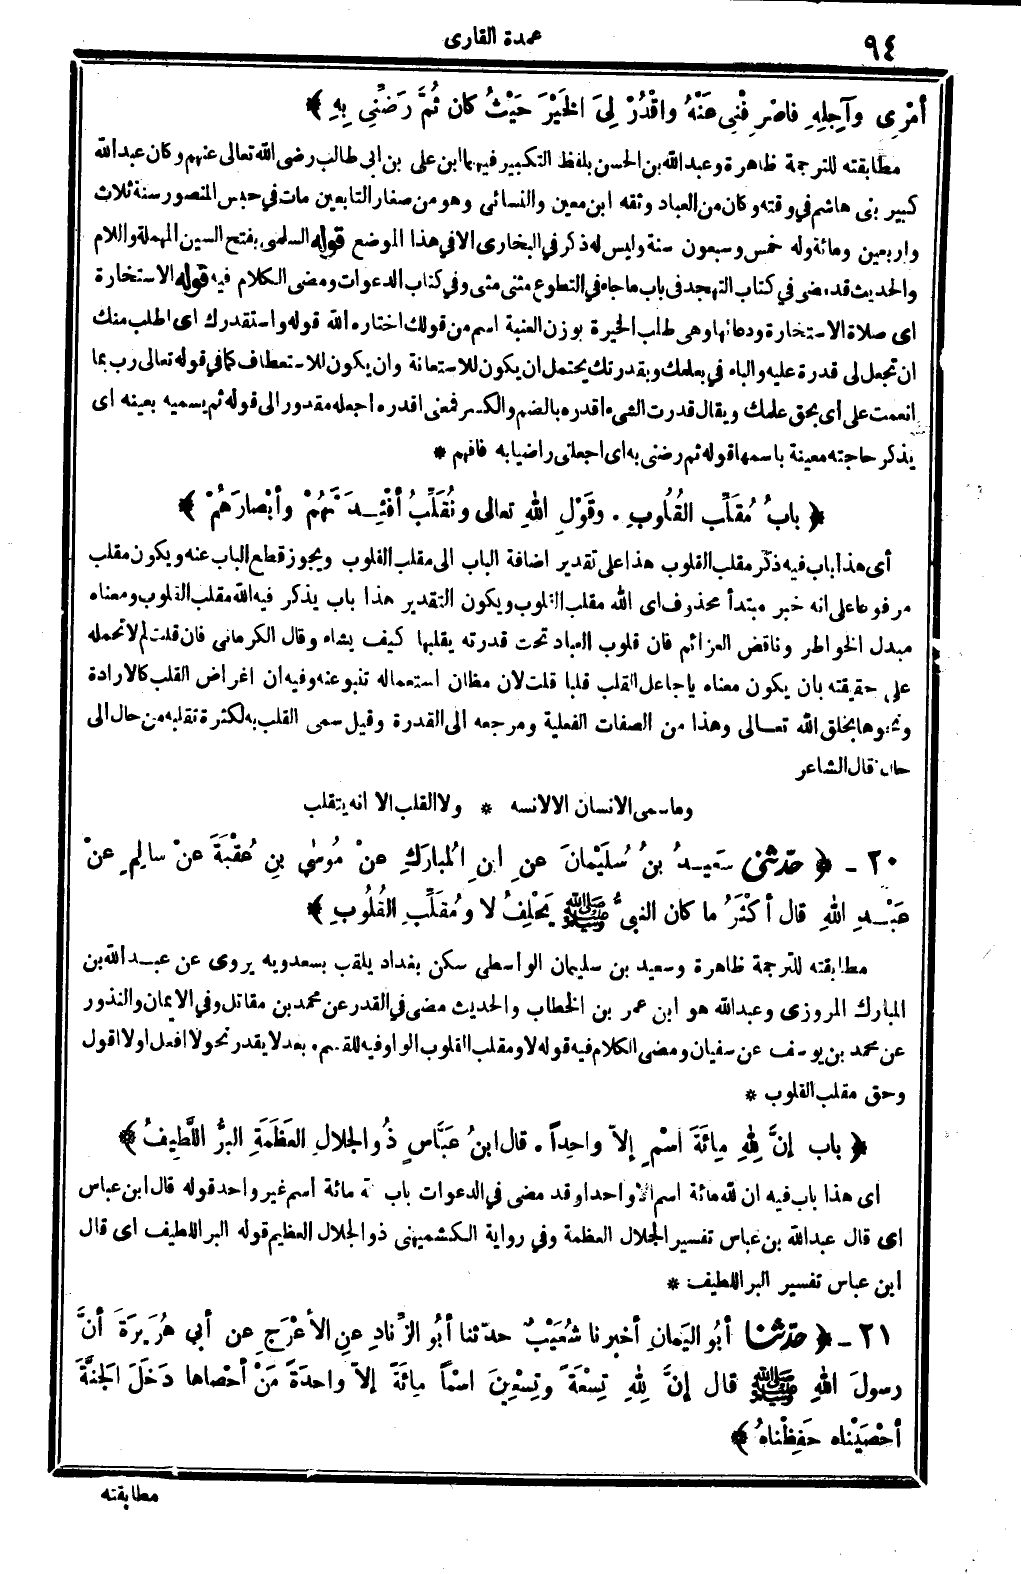 ٩٤
عمدة القارى
أمْرِى وَآجِلِهِ فاصْرِفْنِى عَنْهُ واقْدُرْ لِىَ الخَيْرَ حَيْثُ كان ثُمَّ رَضِّنِى بِهِ ﴾
مطابقته للترجمة ظاهرة وعبدالله بن الحسن بلفظ التكبير فيهما ابن على بن ابى طالب رضى الله تعالى عنهم وكان عبدالله
كبير بنى هاشم فى وقته وكان من العباد وثقه ابن معين والنسائى وهو من صغار التابعين مات فى حبس المنصور سنة ثلاث
واربعين ومائة وله خمس وسبعون سنة وليس له ذكر فى البخارى الا فى هذا الموضع قوله السلمى بفتح السين المهملة واللام
والحديث قد مضى فى كتاب التهجد فى باب ما جاء فى التطوع مثنى مثنى وفى كتاب الدعوات ومضى الكلام فيه قوله الاستخارة
اى صلاة الاستخارة ودعائها وهى طلب الخيرة بوزن العنبة اسم من قولك اختاره الله قوله واستقدرك اى اطلب منك
ان تجعل لى قدرة عليه والباء فى بعلمك وبقدرتك يحتمل ان يكون للاستعانة وان يكون للاستعطاف كما فى قوله تعالى رب بما
انعمت على اى بحق علمك ويقال قدرت الشىء اقدره بالضم والكسر فمعنى اقدره اجعله مقدور الى قوله ثم يسميه بعينه اى
يذكر حاجته معينة باسمها قوله ثم رضنى به اى اجعلنى راضيا به فافهم *
﴿ بابُ مُقَلِّبِ القُلُوبِ . وقَوْلِ اللهِ تعالى ونُقَلِّبُ أفْئِدَتَهُمْ وأبْصارَهُمْ ﴾
أى هذا باب فيه ذكر مقلب القلوب هذا على تقدير اضافة الباب الى مقلب القلوب ويجوز قطع الباب عنه ويكون مقلب
مرفوعا على انه خبر مبتدأ محذوف اى الله مقلب القلوب ويكون التقدير هذا باب يذكر فيه الله مقلب القلوب ومعناه
مبدل الخواطر وناقض العزائم فان قلوب العباد تحت قدرته يقلبها كيف يشاء وقال الكرمانى فان قلت لم لا تحمله
على حقيقته بان يكون معناه يا جاعل القلب قلبا قلت لان مظان استعماله تنبو عنه وفيه ان اغراض القلب كالارادة
ونحوها بخلق الله تعالى وهذا من الصفات الفعلية ومرجعه الى القدرة وقيل سمى القلب به لكثرة تقلبه من حال الى
حال قال الشاعر
وما سمى الانسان الا لانسه * ولا القلب الا انه يتقلب
٢٠ - ﴿ حَدَّثَنى سَعِيدُ بنُ سُلَيْمانَ عنِ ابنِ المُبارَكِ عنْ مُوسٰى بنِ عُقْبَةَ عنْ سالِمٍ عنْ
عَبْدِ اللهِ قال أكْثَرُ ما كان النبىُّ ﷺ يَحْلِفُ لا ومُقَلِّبِ القُلُوبِ ﴾
مطابقته للترجمة ظاهرة وسعيد بن سليمان الواسطى سكن بغداد يلقب بسعدويه يروى عن عبدالله بن
المبارك المروزى وعبدالله هو ابن عمر بن الخطاب والحديث مضى فى القدر عن محمد بن مقاتل وفى الايمان والنذور
عن محمد بن يوسف عن سفيان ومضى الكلام فيه قوله لا ومقلب القلوب الواو فيه للقسم . بعد لا يقدر نحو لا افعل او لا اقول
وحق مقلب القلوب *
﴿ باب إنَّ لِلّٰهِ مِائَةَ اسْمٍ إلاّ واحِداً . قال ابنُ عَبَّاسٍ ذُو الجلالِ العَظَمَةِ البَرُّ اللَّطِيفُ ﴾
اى هذا باب فيه ان لله مائة اسم الا واحدا وقد مضى فى الدعوات باب لله مائة اسم غير واحد قوله قال ابن عباس
اى قال عبدالله بن عباس تفسير الجلال العظمة وفى رواية الكشميهنى ذو الجلال العظيم قوله البر اللطيف اى قال
ابن عباس تفسير البر اللطيف *
٢١ - ﴿ حَدَّثَنا أبُو اليَمانِ أخبرنا شُعَيْبٌ حدّثنا أبُو الزِّنادِ عنِ الأعْرَجِ عن أبي هُرَيرَةَ أنَّ
رسولَ اللهِ ﷺ قال إنَّ لِلّٰهِ تِسْعَةً وتِسْعِينَ اسْماً مِائَةً إلاّ واحِدَةً مَنْ أحْصاها دَخَلَ الجَنَّةَ
أحْصَيْناه حَفِظْناهُ ﴾
مطابقته